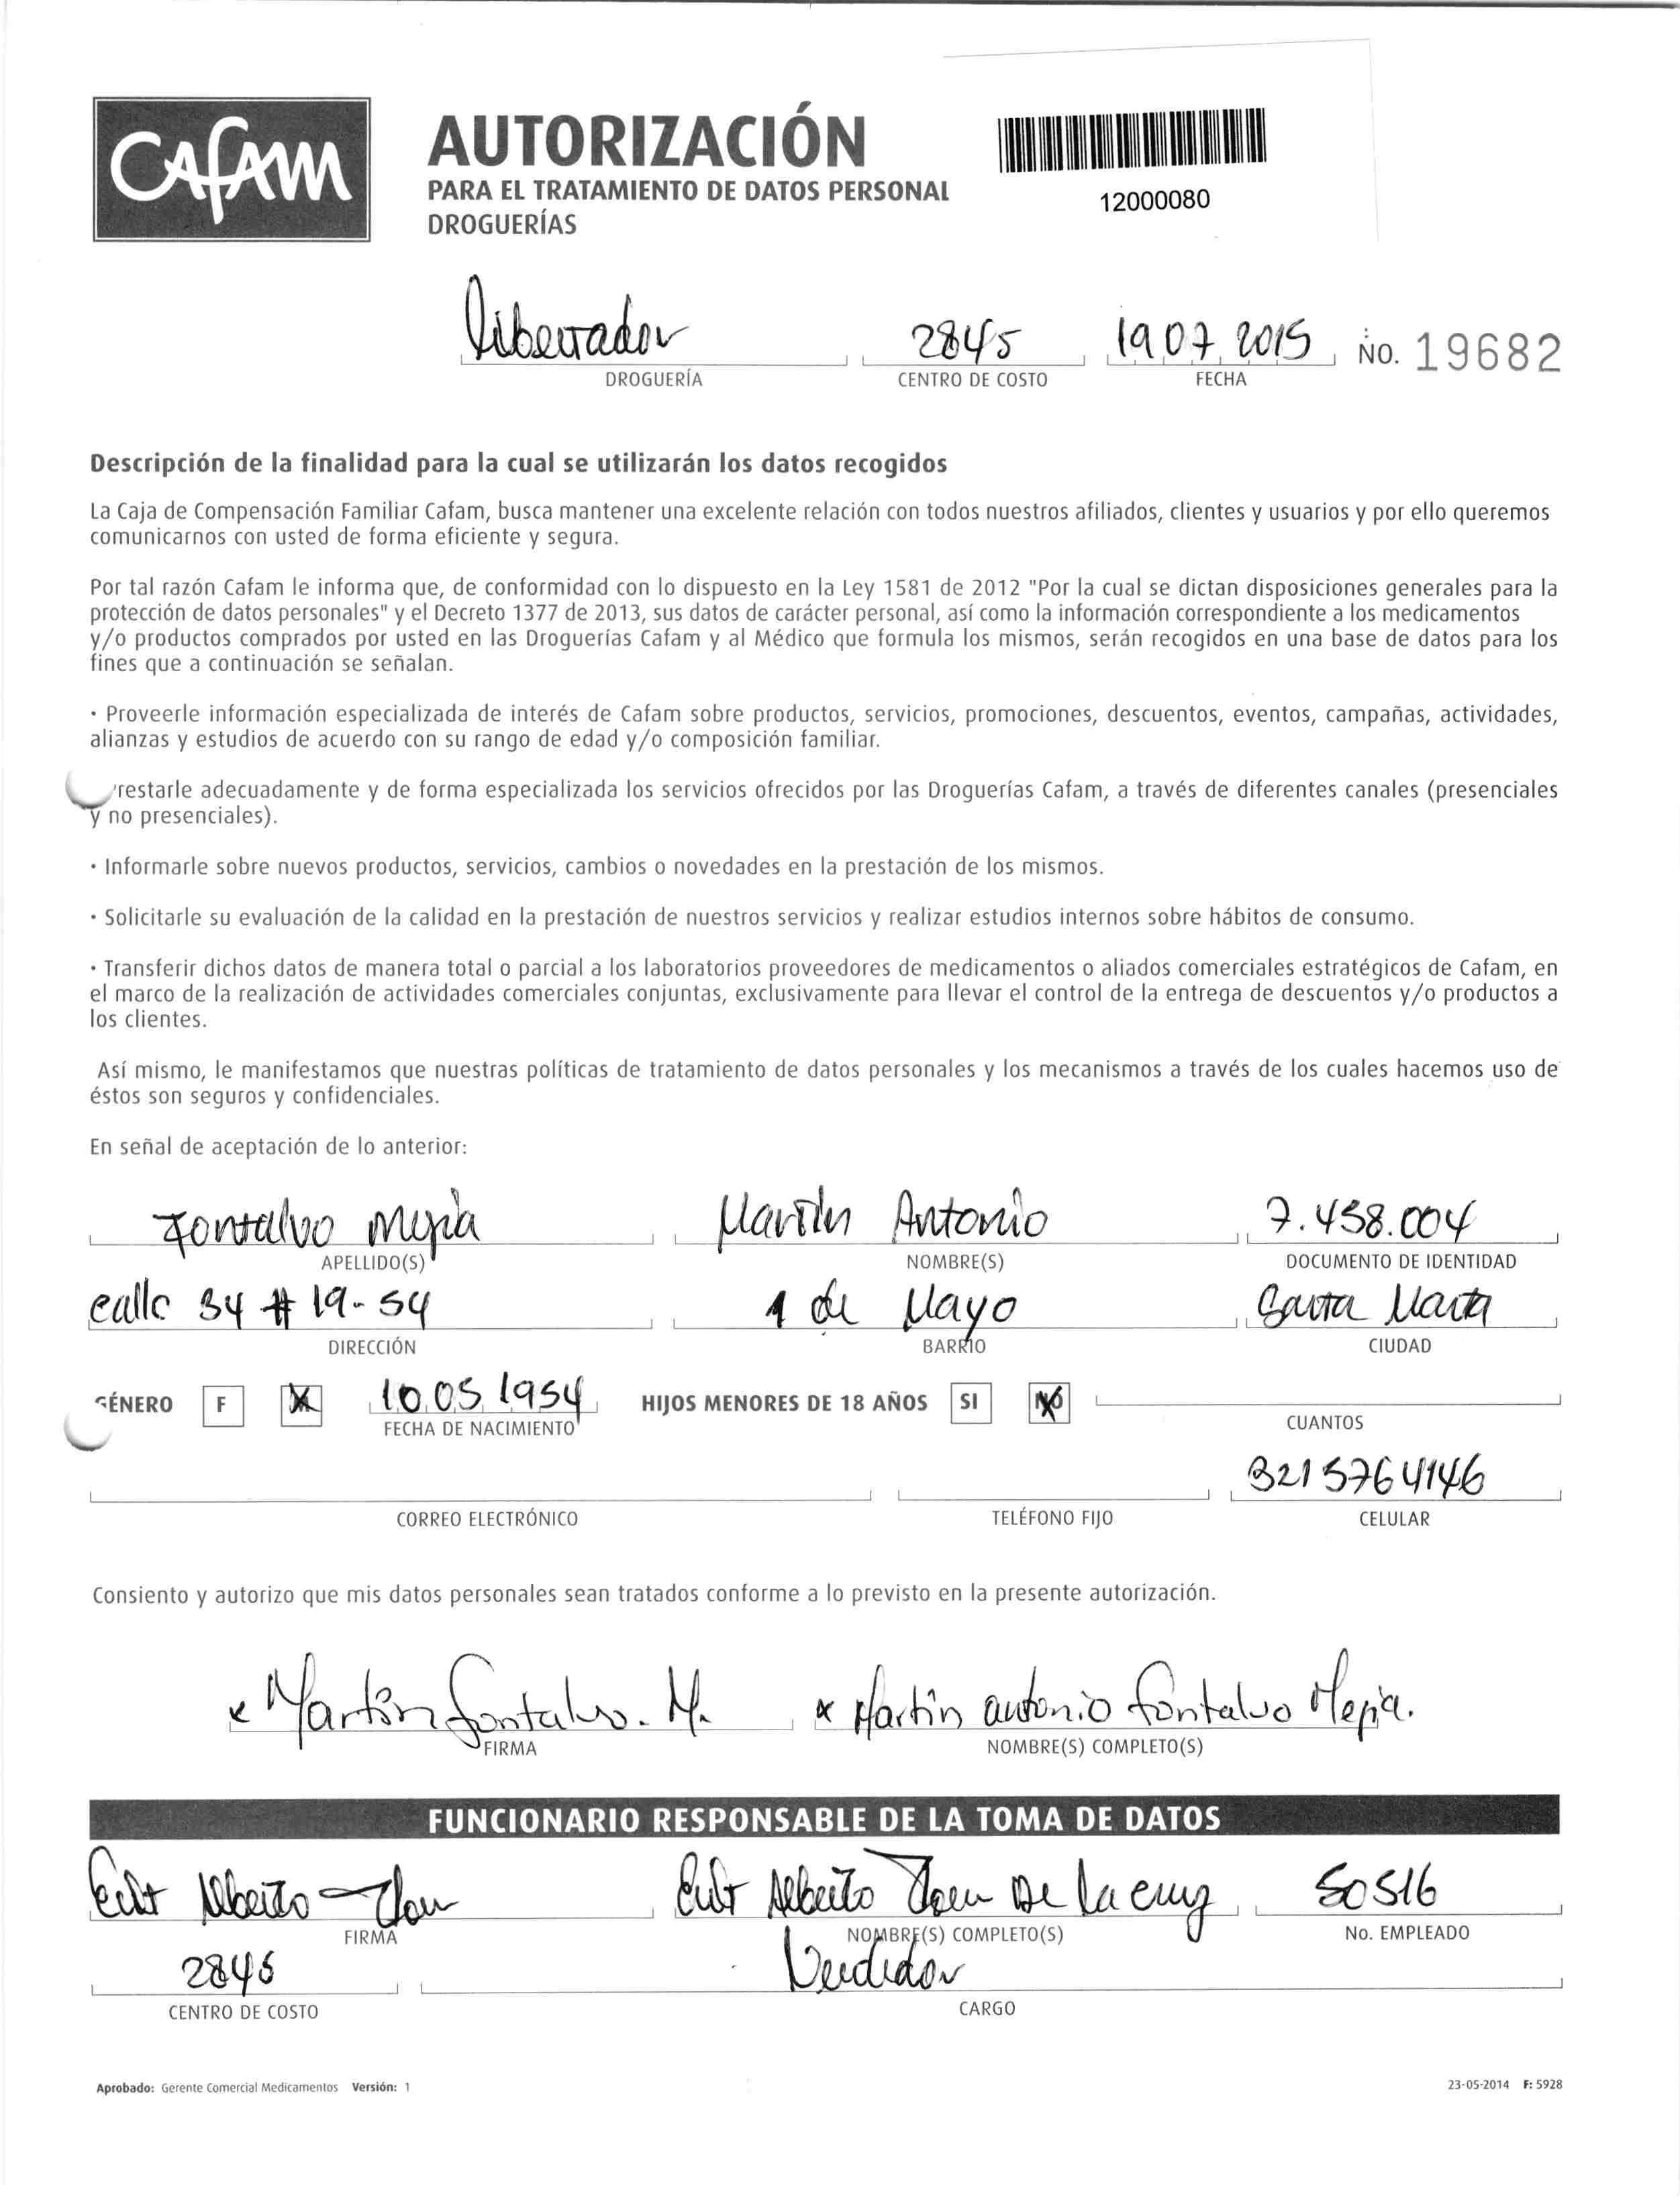 CAFAM
AUTORIZACIÓN
PARA EL TRATAMIENTO DE DATOS PERSONAL
DROGUERÍAS
12000080
Libertador 2845 19 07 2015 No. 19682
DROGUERÍA CENTRO DE COSTO FECHA
Descripción de la finalidad para la cual se utilizarán los datos recogidos
La Caja de Compensación Familiar Cafam, busca mantener una excelente relación con todos nuestros afiliados, clientes y usuarios y por ello queremos
comunicarnos con usted de forma eficiente y segura.
Por tal razón Cafam le informa que, de conformidad con lo dispuesto en la Ley 1581 de 2012 "Por la cual se dictan disposiciones generales para la
protección de datos personales" y el Decreto 1377 de 2013, sus datos de carácter personal, así como la información correspondiente a los medicamentos
y/o productos comprados por usted en las Droguerías Cafam y al Médico que formula los mismos, serán recogidos en una base de datos para los
fines que a continuación se señalan.
· Proveerle información especializada de interés de Cafam sobre productos, servicios, promociones, descuentos, eventos, campañas, actividades,
alianzas y estudios de acuerdo con su rango de edad y/o composición familiar.
restarle adecuadamente y de forma especializada los servicios ofrecidos por las Droguerías Cafam, a través de diferentes canales (presenciales
y no presenciales).
· Informarle sobre nuevos productos, servicios, cambios o novedades en la prestación de los mismos.
· Solicitarle su evaluación de la calidad en la prestación de nuestros servicios y realizar estudios internos sobre hábitos de consumo.
· Transferir dichos datos de manera total o parcial a los laboratorios proveedores de medicamentos o aliados comerciales estratégicos de Cafam, en
el marco de la realización de actividades comerciales conjuntas, exclusivamente para llevar el control de la entrega de descuentos y/o productos a
los clientes.
Así mismo, le manifestamos que nuestras políticas de tratamiento de datos personales y los mecanismos a través de los cuales hacemos uso de
éstos son seguros y confidenciales.
En señal de aceptación de lo anterior:
Fontalvo Mejia Martin Antonio 7.458.004
APELLIDO(S) NOMBRE(S) DOCUMENTO DE IDENTIDAD
calle 34 # 19-54 1 de Mayo Santa Marta
DIRECCIÓN BARRIO CIUDAD
GÉNERO F M 10 05 1954 HIJOS MENORES DE 18 AÑOS SI NO
FECHA DE NACIMIENTO CUANTOS
3215764146
CORREO ELECTRÓNICO TELÉFONO FIJO CELULAR
Consiento y autorizo que mis datos personales sean tratados conforme a lo previsto en la presente autorización.
x Martin fontalvo. M. x Martin antonio fontalvo Mejia.
FIRMA NOMBRE(S) COMPLETO(S)
FUNCIONARIO RESPONSABLE DE LA TOMA DE DATOS
Alberto Alberto De La cruz 50516
FIRMA NOMBRE(S) COMPLETO(S) No. EMPLEADO
2845 Vendedor
CENTRO DE COSTO CARGO
Aprobado: Gerente Comercial Medicamentos Versión: 1 23-05-2014 F: 5928